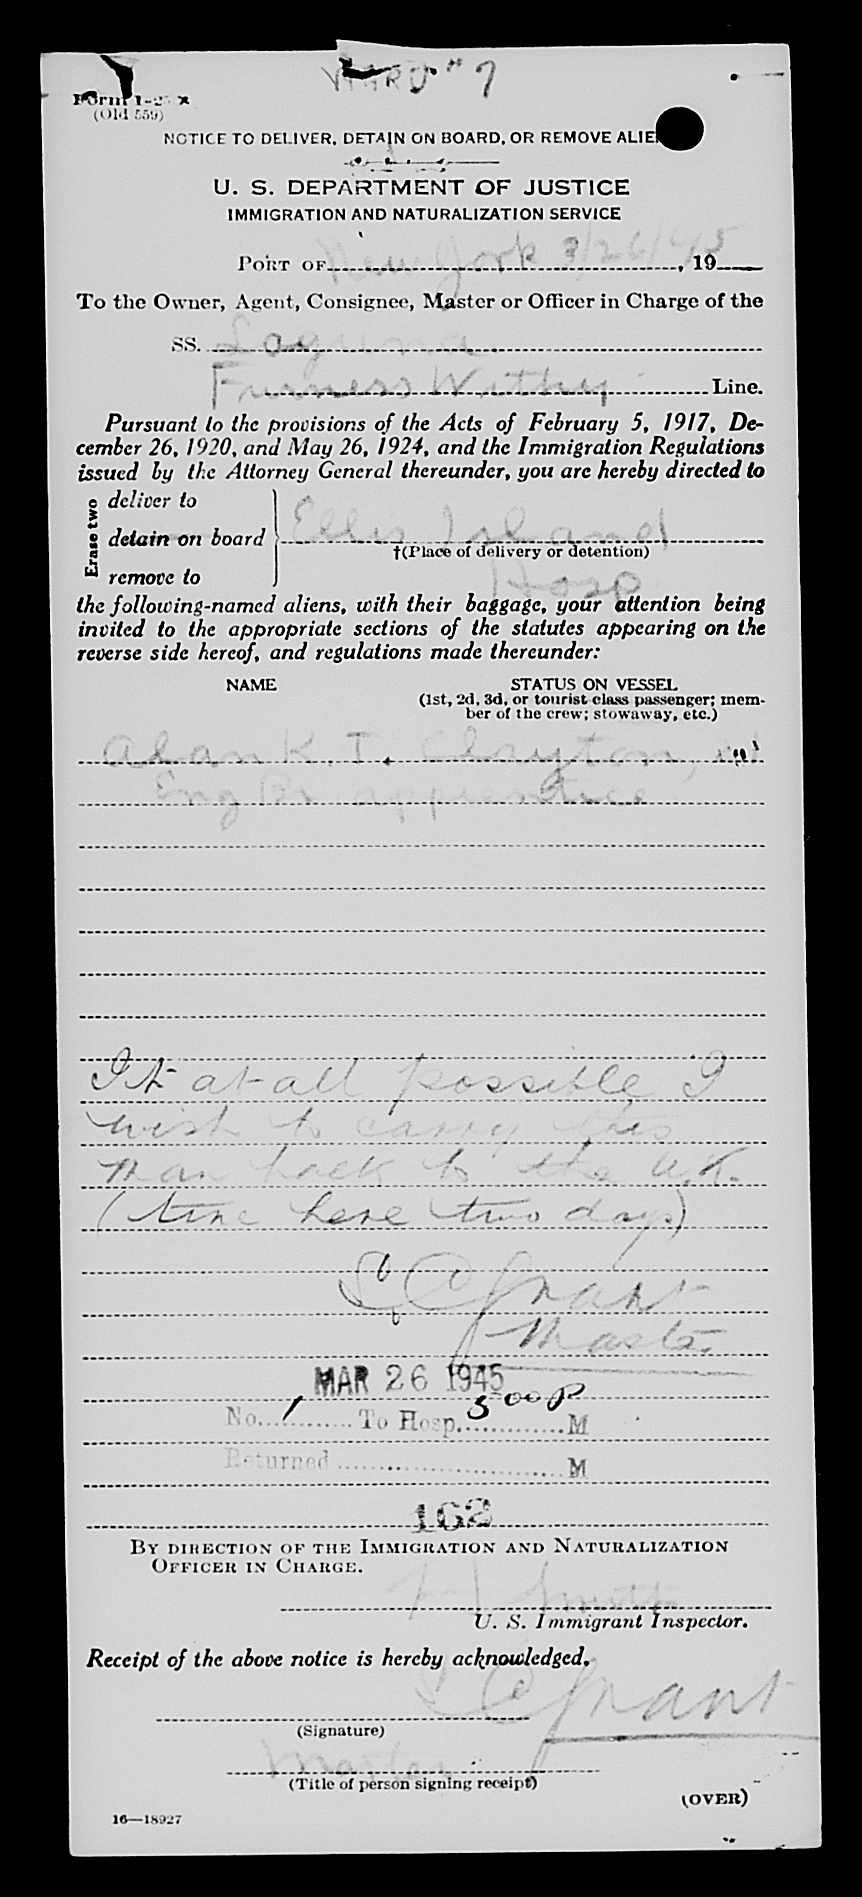 YARD #7
Form I-25
(Old 559)
NOTICE TO DELIVER, DETAIN ON BOARD, OR REMOVE ALIE
U. S. DEPARTMENT OF JUSTICE
IMMIGRATION AND NATURALIZATION SERVICE
PORT OF New York 3/26/45, 19
To the Owner, Agent, Consignee, Master or Officer in Charge of the
SS. Laguna.
Furness Withy Line.
Pursuant to the provisions of the Acts of February 5, 1917, De-
cember 26, 1920, and May 26, 1924, and the Immigration Regulations
issued by the Attorney General thereunder, you are hereby directed to
Erase two
deliver to
detain on board
remove to
Ellis Island
†(Place of delivery or detention)
Hosp
the following-named aliens, with their baggage, your attention being
invited to the appropriate sections of the statutes appearing on the
reverse side hereof, and regulations made thereunder:
NAME STATUS ON VESSEL
(1st, 2d, 3d, or tourist class passenger; mem-
ber of the crew; stowaway, etc.)
Alan K. T. Clayton,
Eng Br apprentice
If at all possible I
wish to carry this
man back to the U.K.
(time here two days)
C Grant
Master
MAR 26 1945
No. 1 To Hosp. 500 P M
Returned M
162
BY DIRECTION OF THE IMMIGRATION AND NATURALIZATION
OFFICER IN CHARGE.
Smith
U. S. Immigrant Inspector.
Receipt of the above notice is hereby acknowledged.
C Grant
(Signature)
Master
(Title of person signing receipt)
(OVER)
16—18927